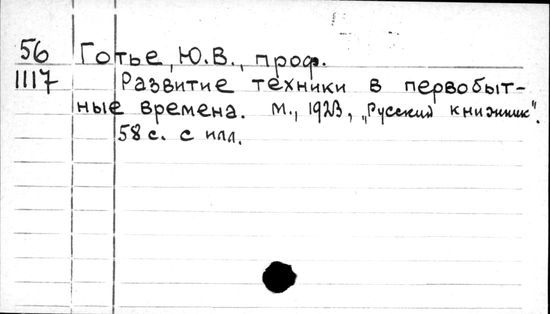 56 Готье, Ю.В., проф.
1117 Развитие техники в первобыт-
ные времена. М., 1923, „Русский книжник".
58 с. с илл.